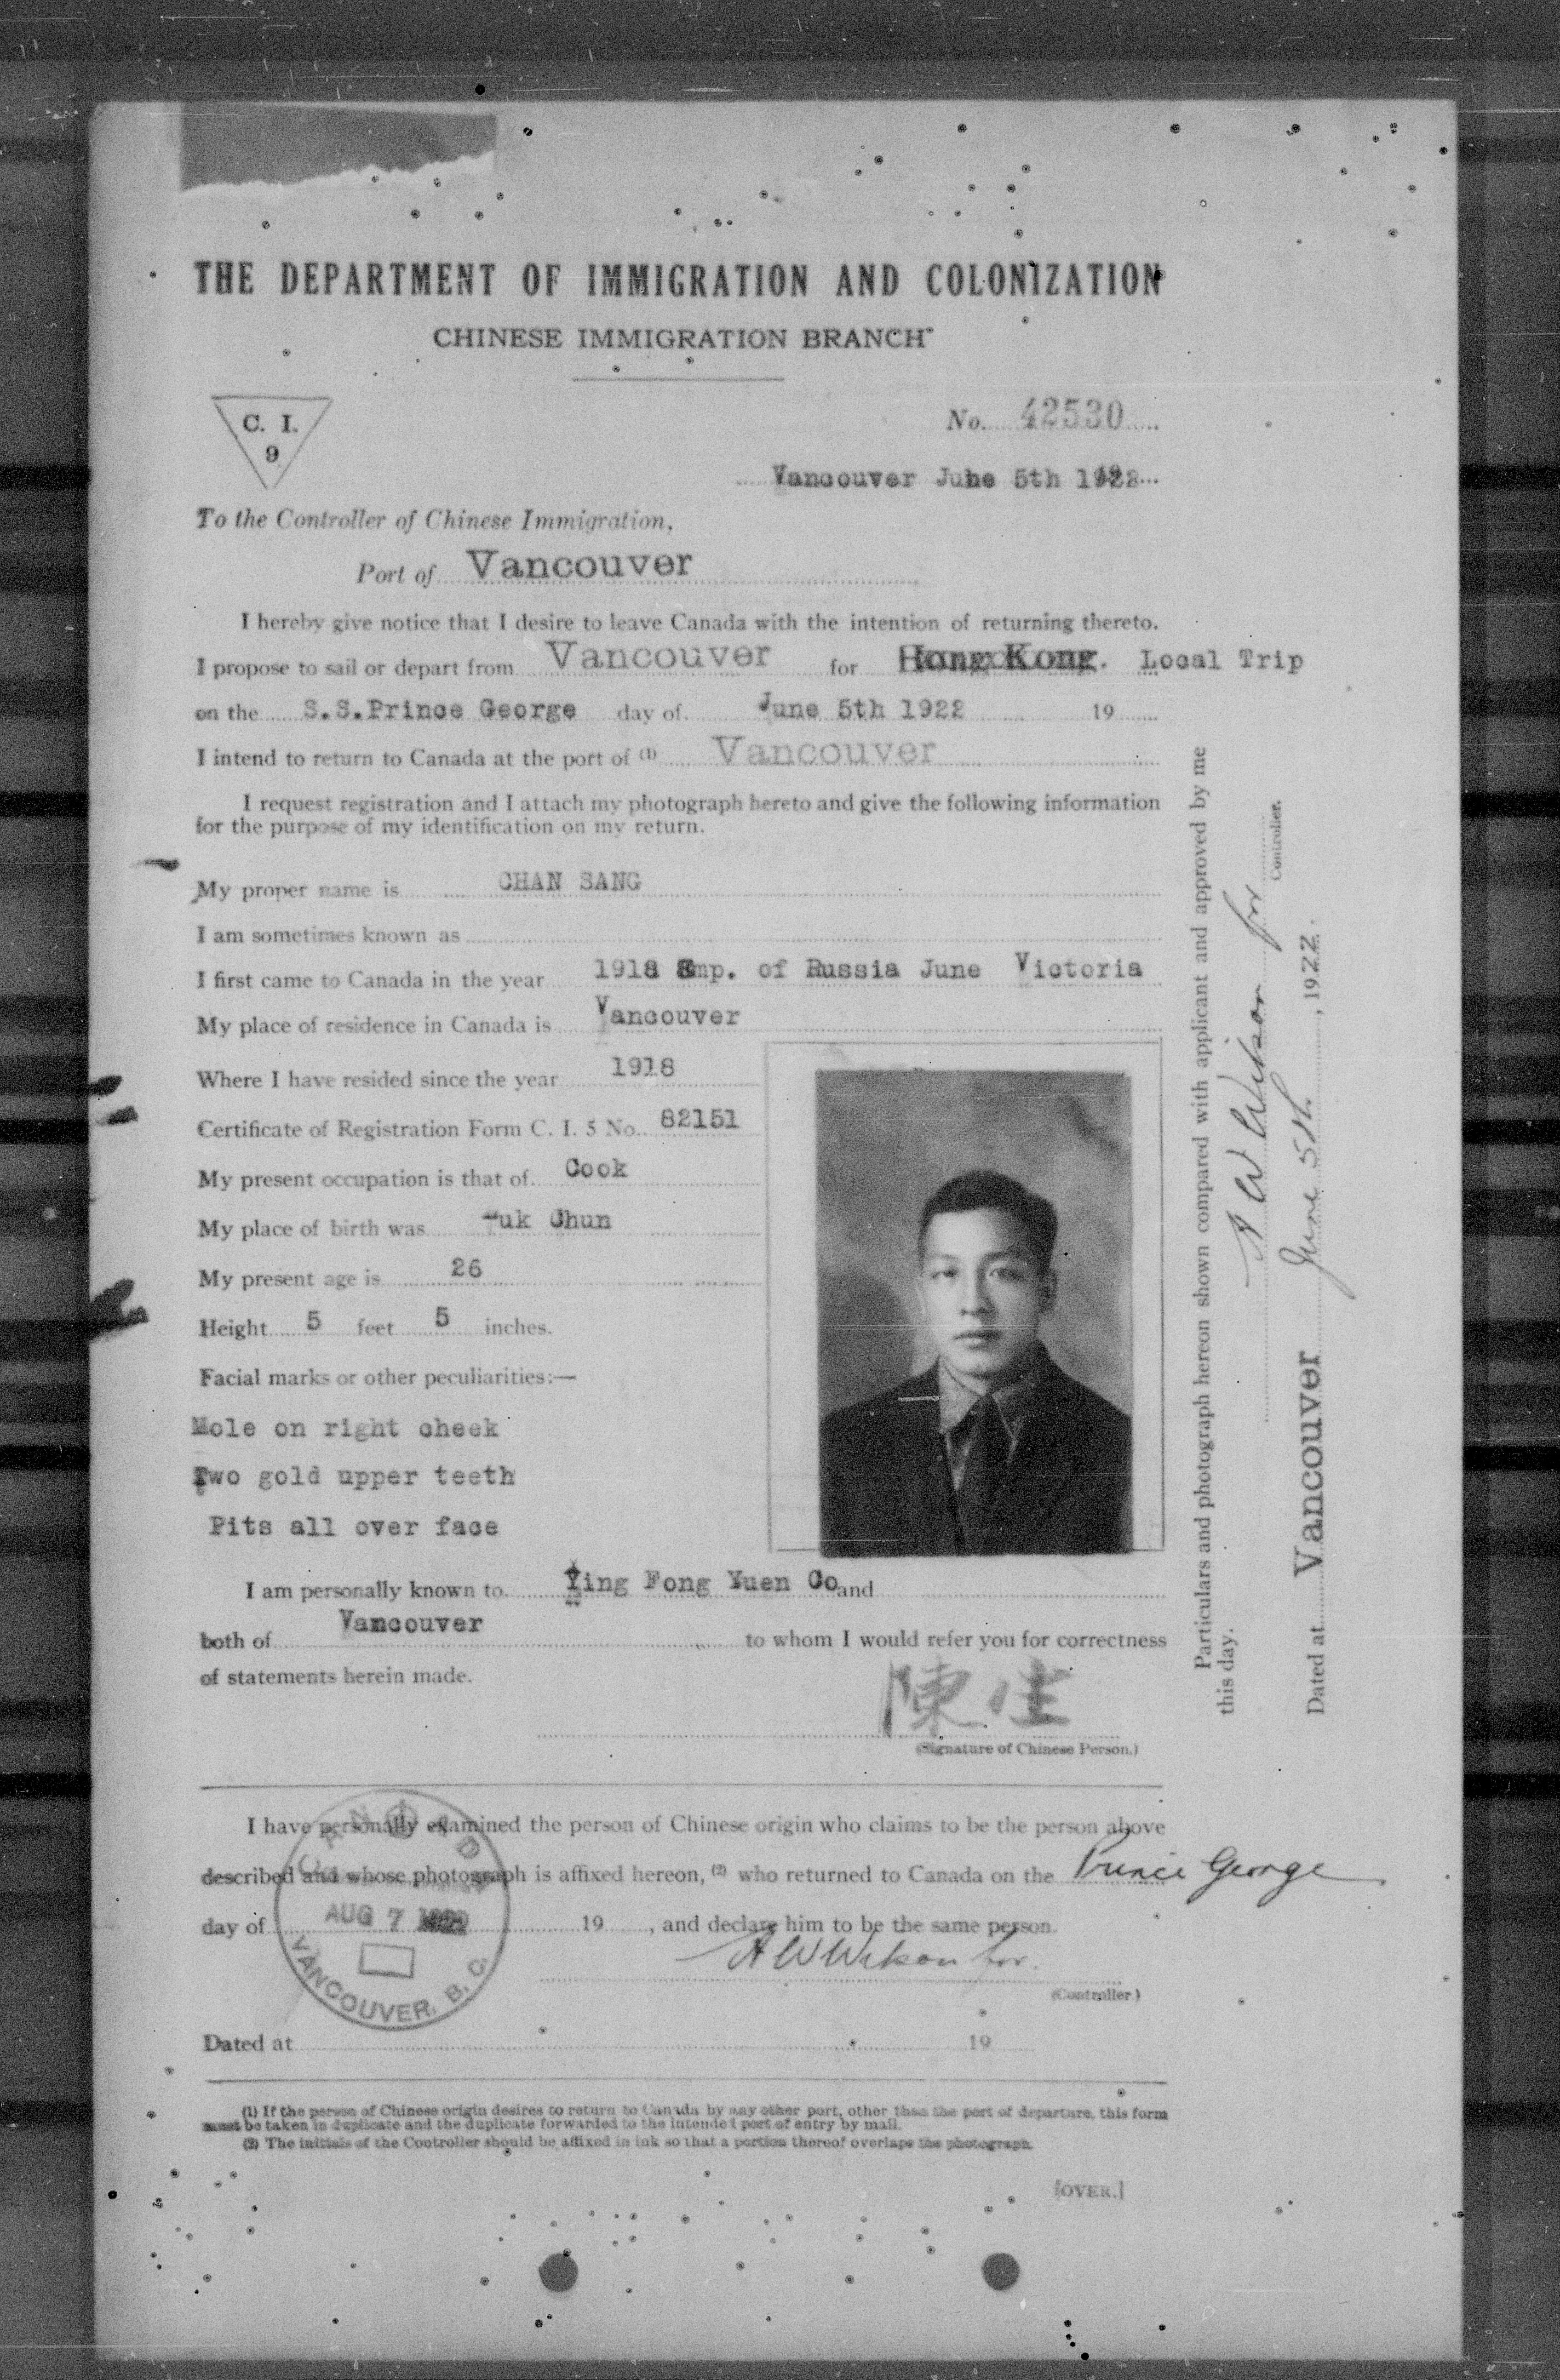 THE DEPARTMENT OF IMMIGRATION AND COLONIZATION
CHINESE IMMIGRATION BRANCH
C. I.
9
No. 42530
Vancouver June 5th 1922
To the Controller of Chinese Immigration,
Port of Vancouver
I hereby give notice that I desire to leave Canada with the intention of returning thereto.
I propose to sail or depart from Vancouver for Hong Kong. Local Trip
on the S.S.Prince George day of June 5th 1922 19
I intend to return to Canada at the port of (1) Vancouver
I request registration and I attach my photograph hereto and give the following information
for the purpose of my identification on my return.
My proper name is CHAN SANG
I am sometimes known as
I first came to Canada in the year 1918 Emp. of Russia June Victoria
My place of residence in Canada is Vancouver
Where I have resided since the year 1918
Certificate of Registration Form C. I. 5 No. 82151
My present occupation is that of Cook
My place of birth was uk Chun
My present age is 26
Height 5 feet 5 inches.
Facial marks or other peculiarities:—
Mole on right cheek
Two gold upper teeth
Pits all over face
I am personally known to Ying Fong Yuen Co and
both of Vancouver to whom I would refer you for correctness
of statements herein made.
陳生
(Signature of Chinese Person.)
I have personally examined the person of Chinese origin who claims to be the person above
described and whose photograph is affixed hereon, (2) who returned to Canada on the Prince George
day of 19 , and declare him to be the same person.
CANADA
AUG 7 1922
VANCOUVER, B. C.
A W Wilson for.
(Controller)
Dated at 19
(1) If the person of Chinese origin desires to return to Canada by any other port, other than the port of departure, this form
must be taken in duplicate and the duplicate forwarded to the intended port of entry by mail.
(2) The initials of the Controller should be affixed in ink so that a portion thereof overlaps the photograph.
[OVER.]
Particulars and photograph hereon shown compared with applicant and approved by me
this day.
A W Wilson for
Controller.
Dated at Vancouver June 5th. , 1922.